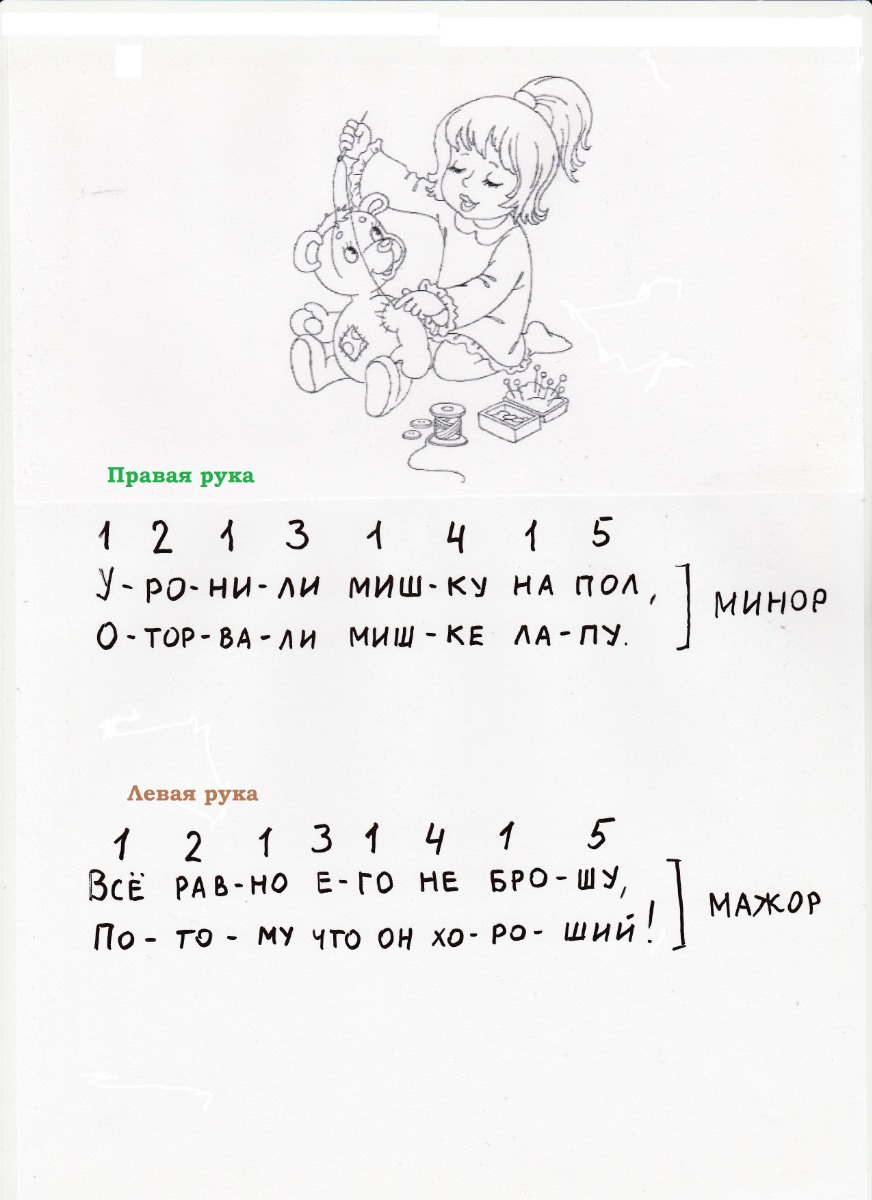 Правая рука
1 2 1 3 1 4 1 5
У-РО-НИ-ЛИ МИШ-КУ НА ПОЛ,
МИНОР
О-ТОР-ВА-ЛИ МИШ-КЕ ЛА-ПУ.
Левая рука
1 2 1 3 1 4 1 5
ВСЁ РАВ-НО Е-ГО НЕ БРО-ШУ,
МАЖОР
ПО-ТО-МУ ЧТО ОН ХО-РО-ШИЙ!